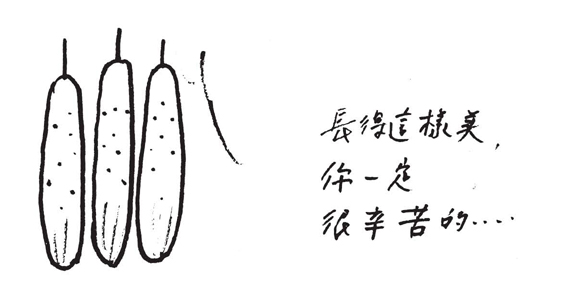 長得這樣美,
你一定
很辛苦的.....